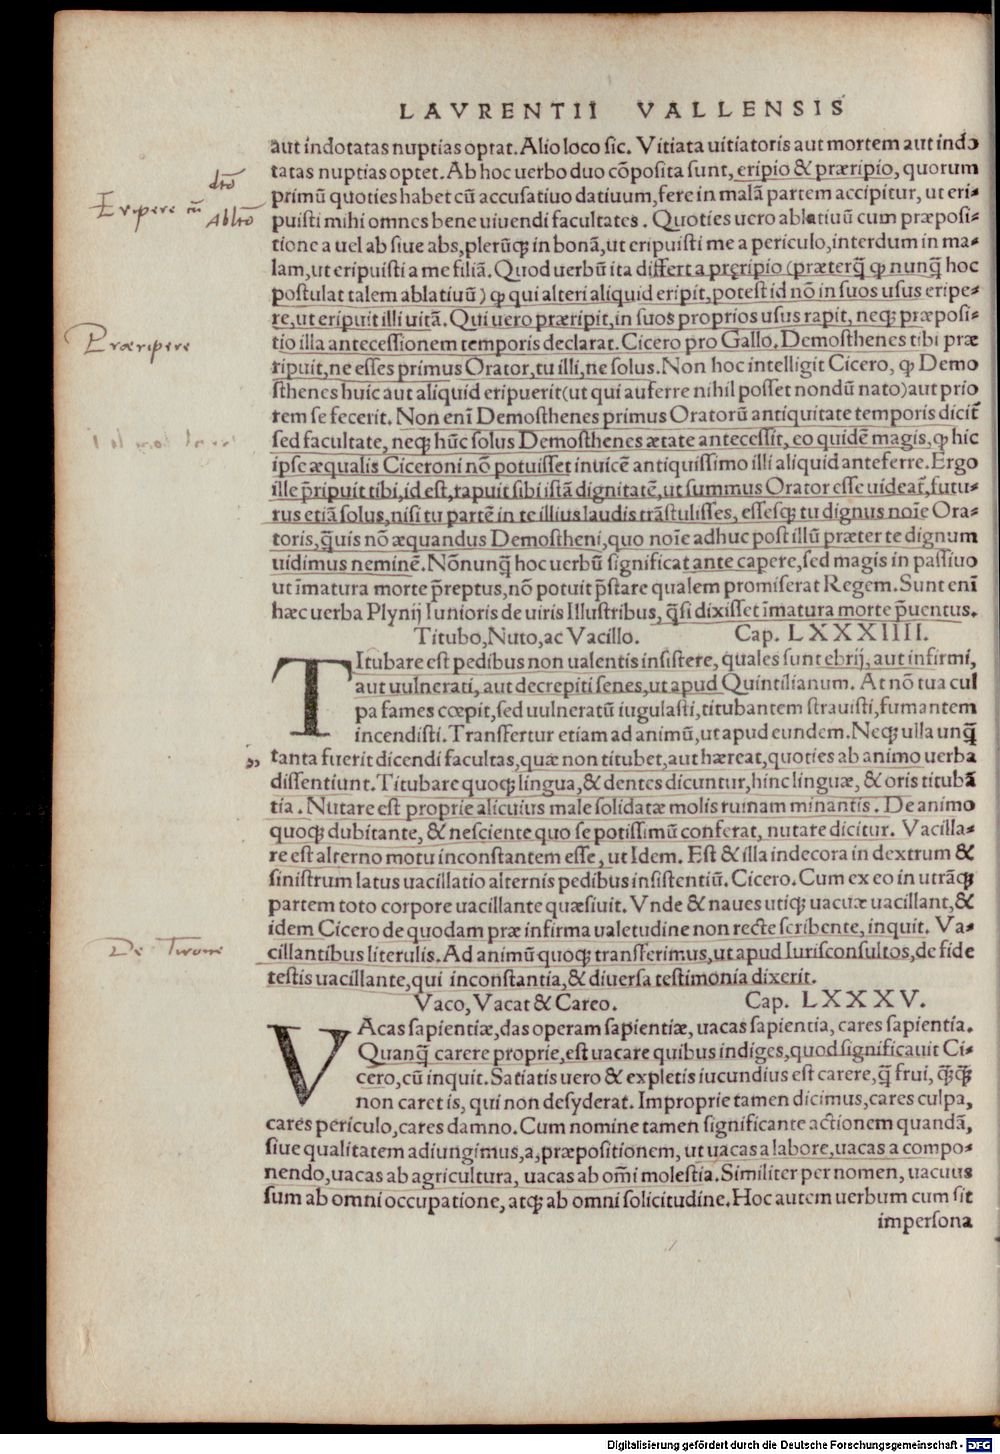 LAVRENTII VALLENSIS
aut indotatas nuptias optat. Alio loco sic. Vitiata uitiatoris aut mortem aut indo
tatas nuptias optet. Ab hoc uerbo duo cōposita sunt, eripio & præripio, quorum
primū quoties habet cū accusatiuo datiuum, fere in malā partem accipitur, ut eri-
puisti mihi omnes bene uiuendi facultates. Quoties uero ablatiuū cum præposi-
tione a uel ab siue abs, plerūq; in bonā, ut eripuisti me a periculo, interdum in ma-
lam, ut eripuisti a me filiā. Quod uerbū ita differt a pręripio (præterq̄ ꝙ nunq̄ hoc
postulat talem ablatiuū) ꝙ qui alteri aliquid eripit, potest id nō in suos usus eripe-
re, ut eripuit illi uitā. Qui uero præripit, in suos proprios usus rapit, neq; præposi-
tio illa antecessionem temporis declarat. Cicero pro Gallo. Demosthenes tibi præ
ripuit, ne esses primus Orator, tu illi, ne solus. Non hoc intelligit Cicero, ꝙ Demo
sthenes huic aut aliquid eripuerit (ut qui auferre nihil posset nondū nato) aut prio
rem se fecerit. Non enī Demosthenes primus Oratorū antiquitate temporis dicit̄
sed facultate, neq; hūc solus Demosthenes ætate antecessit, eo quidē magis, ꝙ hic
ipse æqualis Ciceroni nō potuisset inuicē antiquissimo illi aliquid anteferre. Ergo
ille p̄ripuit tibi, id est, rapuit sibi istā dignitatē, ut summus Orator esse uideat̄, futu-
rus etiā solus, nisi tu partē in te illius laudis trāstulisses, essesq; tu dignus noīe Ora-
toris, q̄uis nō æquandus Demostheni, quo noīe adhuc post illū præter te dignum
uidimus neminē. Nōnunq̄ hoc uerbū significat ante capere, sed magis in passiuo
ut īmatura morte p̄reptus, nō potuit p̄stare qualem promiserat Regem. Sunt enī
hæc uerba Plynij Iunioris de uiris Illustribus, q̄si dixisset īmatura morte p̄uentus.
Titubo, Nuto, ac Vacillo. Cap. LXXXIIII.
TItubare est pedibus non ualentis insistere, quales sunt ebrij, aut infirmi,
aut uulnerati, aut decrepiti senes, ut apud Quintilianum. At nō tua cul
pa fames cœpit, sed uulneratū iugulasti, titubantem strauisti, fumantem
incendisti. Transfertur etiam ad animū, ut apud eundem. Neq; ulla unq̄
tanta fuerit dicendi facultas, quæ non titubet, aut hæreat, quoties ab animo uerba
dissentiunt. Titubare quoq; lingua, & dentes dicuntur, hinc linguæ, & oris titubā
tia. Nutare est proprie alicuius male solidatæ molis ruinam minantis. De animo
quoq; dubitante, & nesciente quo se potissimū conferat, nutare dicitur. Vacilla-
re est alterno motu inconstantem esse, ut Idem. Est & illa indecora in dextrum &
sinistrum latus uacillatio alternis pedibus insistentiū. Cicero. Cum ex eo in utrāq;
partem toto corpore uacillante quæsiuit. Vnde & naues utiq; uacuæ uacillant, &
idem Cicero de quodam præ infirma ualetudine non recte scribente, inquit. Va-
cillantibus literulis. Ad animū quoq; transferimus, ut apud Iurisconsultos, de fide
testis uacillante, qui inconstantia, & diuersa testimonia dixerit.
Vaco, Vacat & Careo. Cap. LXXXV.
VAcas sapientiæ, das operam sapientiæ, uacas sapientia, cares sapientia.
Quanq̄ carere proprie, est uacare quibus indiges, quod significauit Ci-
cero, cū inquit. Satiatis uero & expletis iucundius est carere, q̄ frui, q̄q̄
non caret is, qui non desyderat. Improprie tamen dicimus, cares culpa,
cares periculo, cares damno. Cum nomine tamen significante actionem quandā,
siue qualitatem adiungimus, a, præpositionem, ut uacas a labore, uacas a compo-
nendo, uacas ab agricultura, uacas ab om̄i molestia. Similiter per nomen, uacuus
sum ab omni occupatione, atq; ab omni solicitudine. Hoc autem uerbum cum sit
impersona
Eripere cū
dtō
Abltō
Præripere
De Tirone
Digitalisierung gefördert durch die Deutsche Forschungsgemeinschaft - DFG